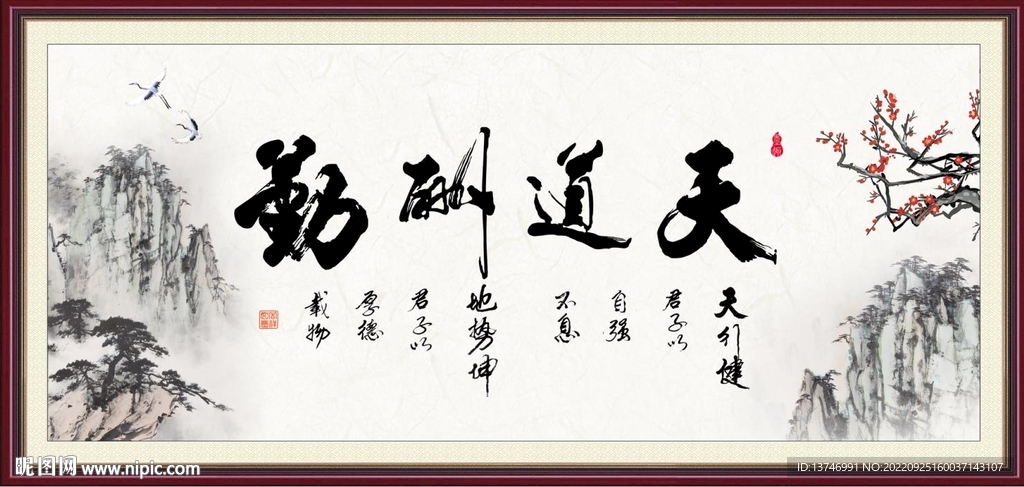 天道酬勤
天行健
君子以
自强
不息
地势坤
君子以
厚德
载物
昵图网 www.nipic.com
ID:13746991 NO:20220925160037143107